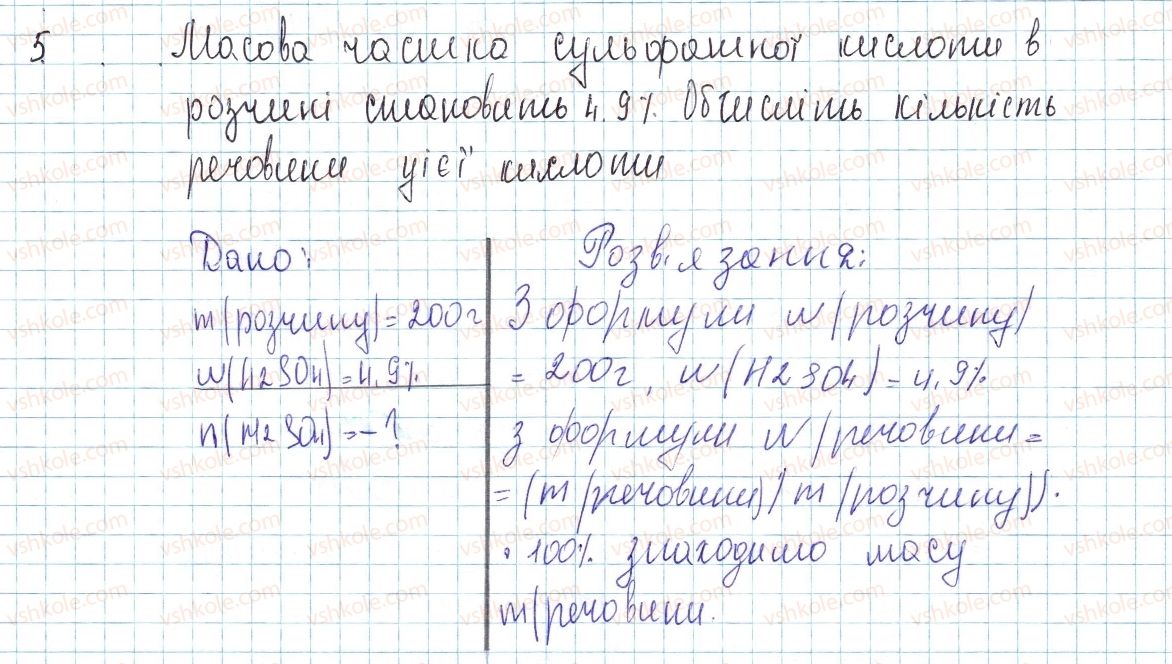 5. Масова частка сульфатної кислоти в
розчині становить 4.9%. Обчисліть кількість
речовини цієї кислоти
Дано:
m(розчину)=200г
w(H2SO4)=4,9%
n(H2SO4)=-?
Розв'язання:
З формули w(розчину)
= 200г, w(H2SO4)=4,9%
з формули w(речовини=
=(m(речовини)/m(розчину))·
·100% знаходимо масу
m(речовини.
vshkole.com